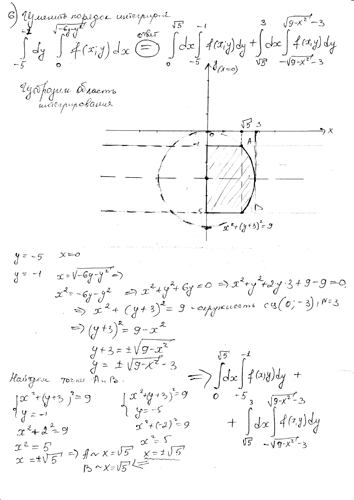 6) Изменить порядок интегриров.
∫₋₅⁻¹ dy ∫₀^√(-6y-y²) f(x;y) dx = ответ ∫₀^√5 dx ∫₋₅⁻¹ f(x;y) dy + ∫_√5^3 dx ∫_{-√(9-x²)-3}^{√(9-x²)-3} f(x,y) dy
область
интегрирования
y (x=0)
0
√5 3 x
-1 A
-5
x²+(y+3)²=9
y = -5 x=0
y = -1 x=√(-6y-y²) ⇒
x²=-6y-y² ⇒ x²+y²+6y=0 ⇒ x²+y²+2y·3+9-9=0
⇒ x²+(y+3)²=9 - окружность с ц(0;-3), R=3
⇒ (y+3)²=9-x²
y+3=±√(9-x²)
y=±√(9-x²)-3
Найдем точки A и B.
{ x²+(y+3)²=9 { x²+(y+3)²=9
y=-1 y=-5
x²+2²=9 x²+(-2)²=9
x²=5 x²=5
x=±√5 ⇒ A ~ x=√5 x=±√5
B ~ x=√5
⇒ ∫₀^√5 dx ∫₋₅⁻¹ f(x;y) dy +
+ ∫_√5^3 dx ∫_{-√(9-x²)-3}^{√(9-x²)-3} f(x;y) dy